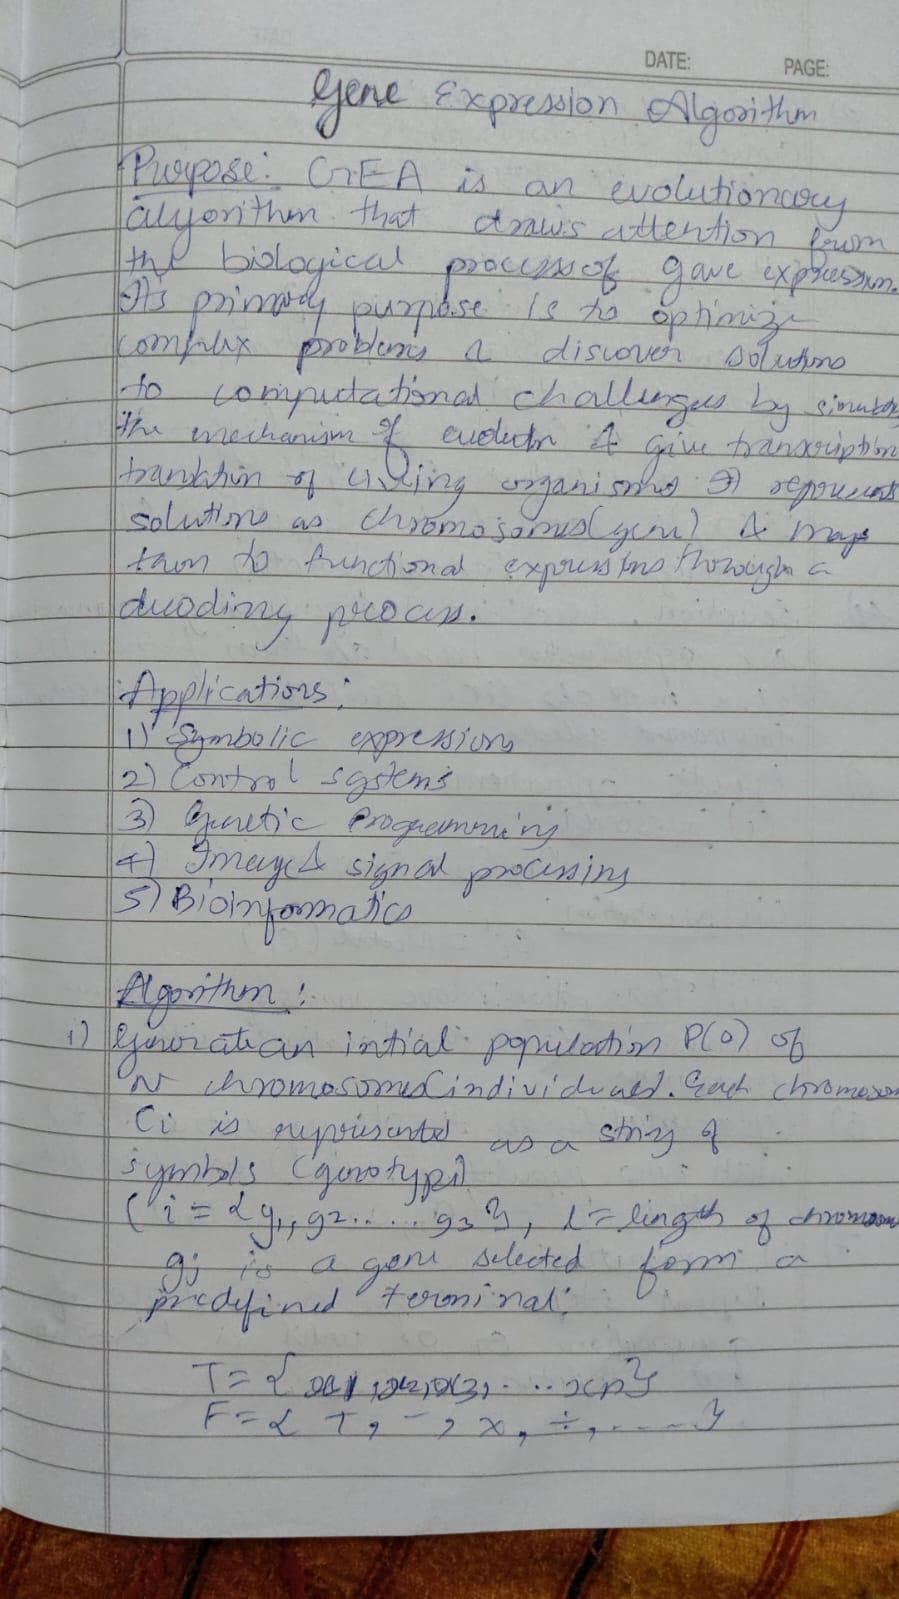 DATE: PAGE:
Gene Expression Algorithm
Purpose: GEA is an evolutionary
algorithm that draws attention from
the biological process of gave expression.
Its primary purpose is to optimize
complex problems & discover solutions
to computational challenges by
the mechanism of & give transcription
of living organisms It represents
solutions as chromosomes (gene) & maps
them to functional expressions through a
decoding process.
Applications:
1) Symbolic expressions
2) Control systems
3) Genetic Programming
4) Image & signal processing
5) Bioinformatics
Algorithm:
1) Generate an intial population P(0) of
N chromosomes individuals. Each chromosom
Ci is represented as a string of
symbols (genotype)
Ci = {g1, g2..... g3}, l = length of chromosom
gj is a gene selected form a
predefined terminal:
T = {x1, x2, x3, ... xn}
F = { +, -, x, ÷, .... }